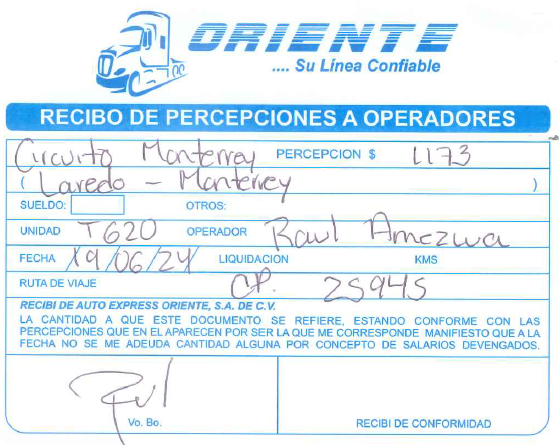 ORIENTE
.... Su Línea Confiable
RECIBO DE PERCEPCIONES A OPERADORES
Circuito Monterrey PERCEPCION $ 1173
( Laredo - Monterrey )
SUELDO: OTROS:
UNIDAD T620 OPERADOR Raul Amezwa
FECHA 19/06/24 LIQUIDACION KMS
RUTA DE VIAJE CP. 25945
RECIBI DE AUTO EXPRESS ORIENTE, S.A. DE C.V.
LA CANTIDAD A QUE ESTE DOCUMENTO SE REFIERE, ESTANDO CONFORME CON LAS
PERCEPCIONES QUE EN EL APARECEN POR SER LA QUE ME CORRESPONDE MANIFIESTO QUE A LA
FECHA NO SE ME ADEUDA CANTIDAD ALGUNA POR CONCEPTO DE SALARIOS DEVENGADOS.
Vo. Bo. RECIBI DE CONFORMIDAD